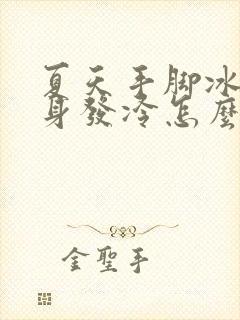 夏天手脚冰
身發冷怎麼
金聖手